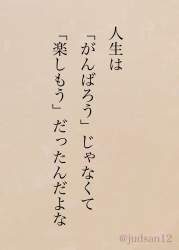 人生は
「がんばろう」じゃなくて
「楽しもう」だったんだよな
@judsan12